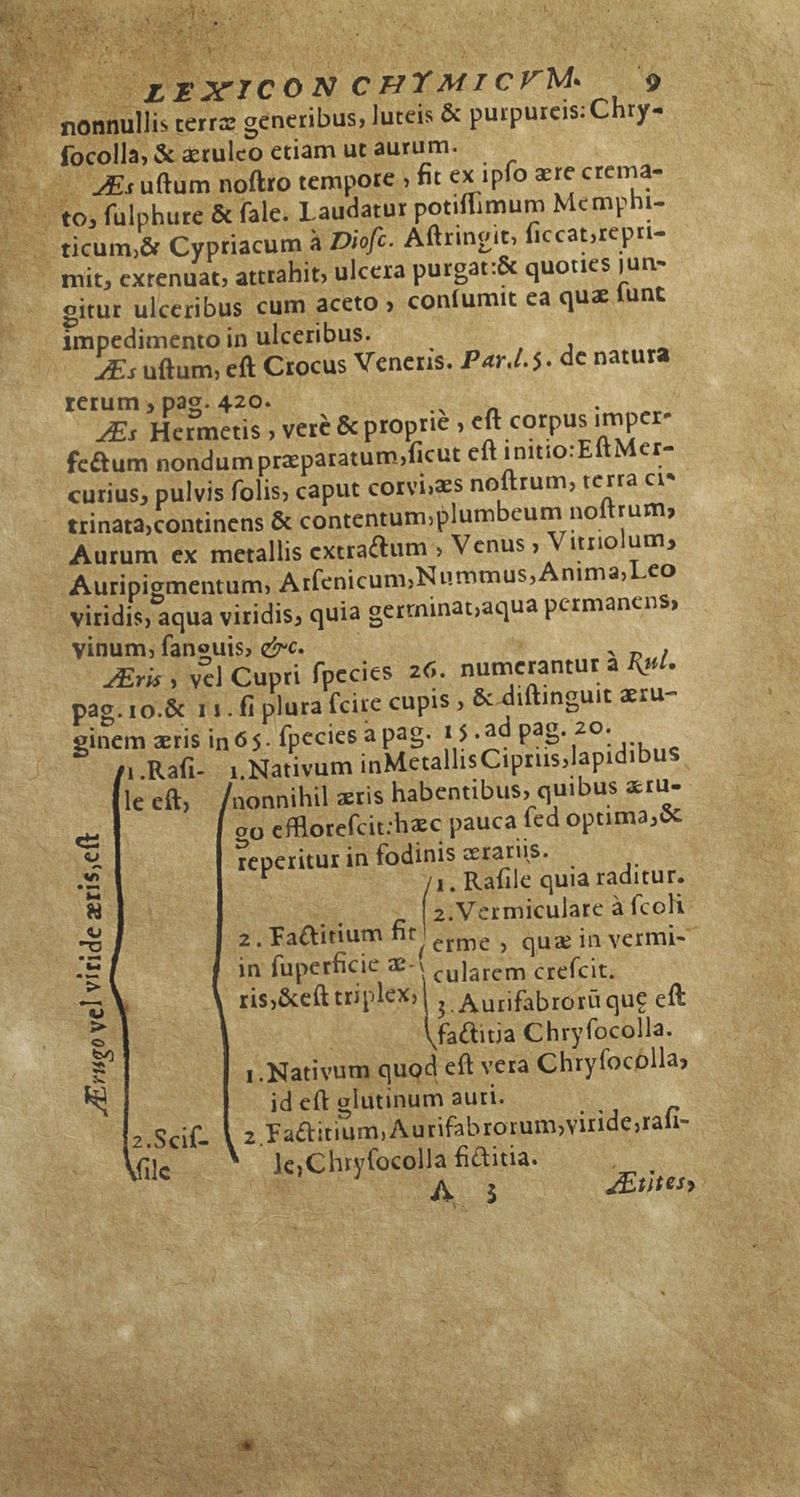 LEXICON CHYMICVM. 9
nonnullis terræ generibus, luteis & purpureis: Chry-
ſocolla, & æruleo etiam ut aurum.
Æs uſtum noſtro tempore , fit ex ipſo ære crema-
to, ſulphure & ſale. Laudatur potiſſimum Memphi-
ticum,& Cypriacum à Dioſc. Aſtringit, ſiccat,repri-
mit, extenuat, attrahit, ulcera purgat:& quoties jun-
gitur ulceribus cum aceto , conſumit ea quæ ſunt
impedimento in ulceribus.
Æs uſtum, eſt Crocus Veneris. Par.l.5. de natura
rerum , pag. 420.
Æs Hermetis , verè & propriè , eſt corpus imper-
fectum nondum præparatum,ſicut eſt initio:Eſt Mer-
curius, pulvis ſolis, caput corvi,æs noſtrum, terra ci-
trinata,continens & contentum,plumbeum noſtrum,
Aurum ex metallis extractum , Venus , Vitriolum,
Auripigmentum, Arſenicum,Nummus,Anima,Leo
viridis, aqua viridis, quia germinat,aqua permanens,
vinum, ſanguis, &c.
Æris , vel Cupri ſpecies 26. numerantur à Rul.
pag. 10.& 11. ſi plura ſcire cupis , & diſtinguit æru-
ginem æris in 65. ſpecies a pag. 15 .ad pag. 20.
Ærugo vel viride æris,eſt
1.Raſi- 1.Nativum in Metallis Cipriis,lapidibus
le eſt, nonnihil æris habentibus, quibus æru-
go effloreſcit:hæc pauca ſed optima,&
reperitur in fodinis ærariis.
1. Raſile quia raditur.
2.Vermiculare à ſcoli
2. Factitium fit erme , quæ in vermi-
in ſuperficie æ- cularem creſcit.
ris,&eſt triplex, 3.Aurifabrorū quę eſt
factitia Chryſocolla.
1.Nativum quod eſt vera Chryſocolla,
id eſt glutinum auri.
2.Sciſ- 2.Factitium,Aurifabrorum,viride,raſi-
ſile le,Chryſocolla fictitia.
A 3 Ætites,